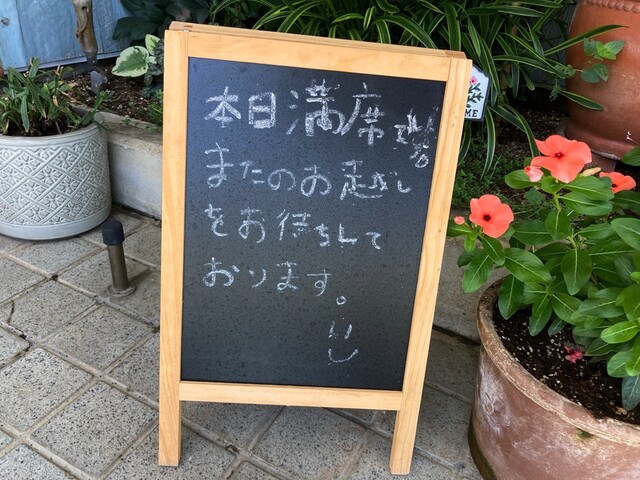 本日満席
またのお越し
をお待ちして
おります。
ME